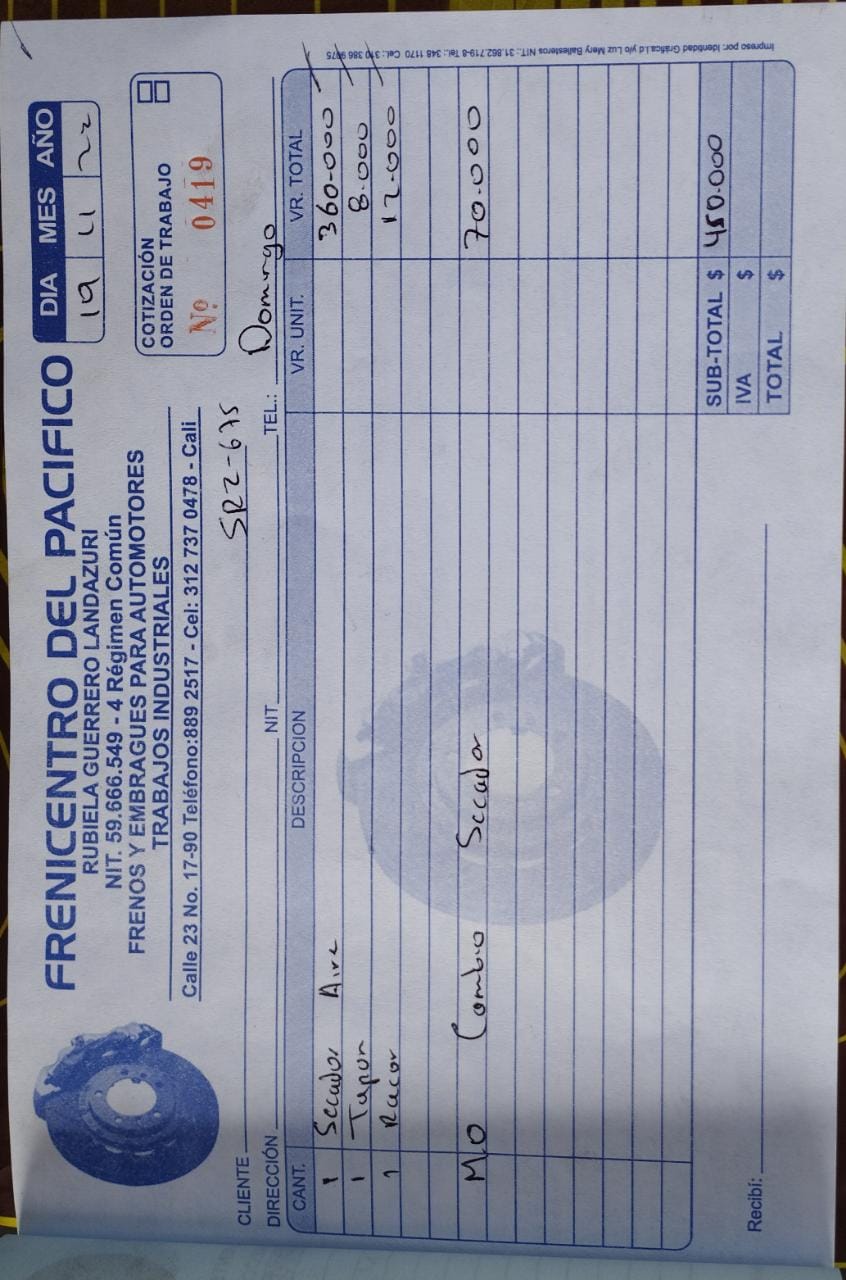 FRENICENTRO DEL PACIFICO
RUBIELA GUERRERO LANDAZURI
NIT. 59.666.549 - 4 Régimen Común
FRENOS Y EMBRAGUES PARA AUTOMOTORES
TRABAJOS INDUSTRIALES
Calle 23 No. 17-90 Teléfono:889 2517 - Cel: 312 737 0478 - Cali
DIA MES AÑO
19 11 22
COTIZACIÓN
ORDEN DE TRABAJO
Nº 0419
CLIENTE SRZ-675
DIRECCIÓN NIT TEL.: Domingo
CANT. DESCRIPCION VR. UNIT. VR. TOTAL
1 Secador Aire 360.000
1 Tapon 8.000
1 Racor 12.000
M.O Cambio Secador 70.000
SUB-TOTAL $ 450.000
IVA $
TOTAL $
Recibí:
Impreso por: Identidad Gráfica I.d y/o Luz Mery Ballesteros NIT.: 31.862.719-8 Tel.: 348 1170 Cel.: 310 386 9975